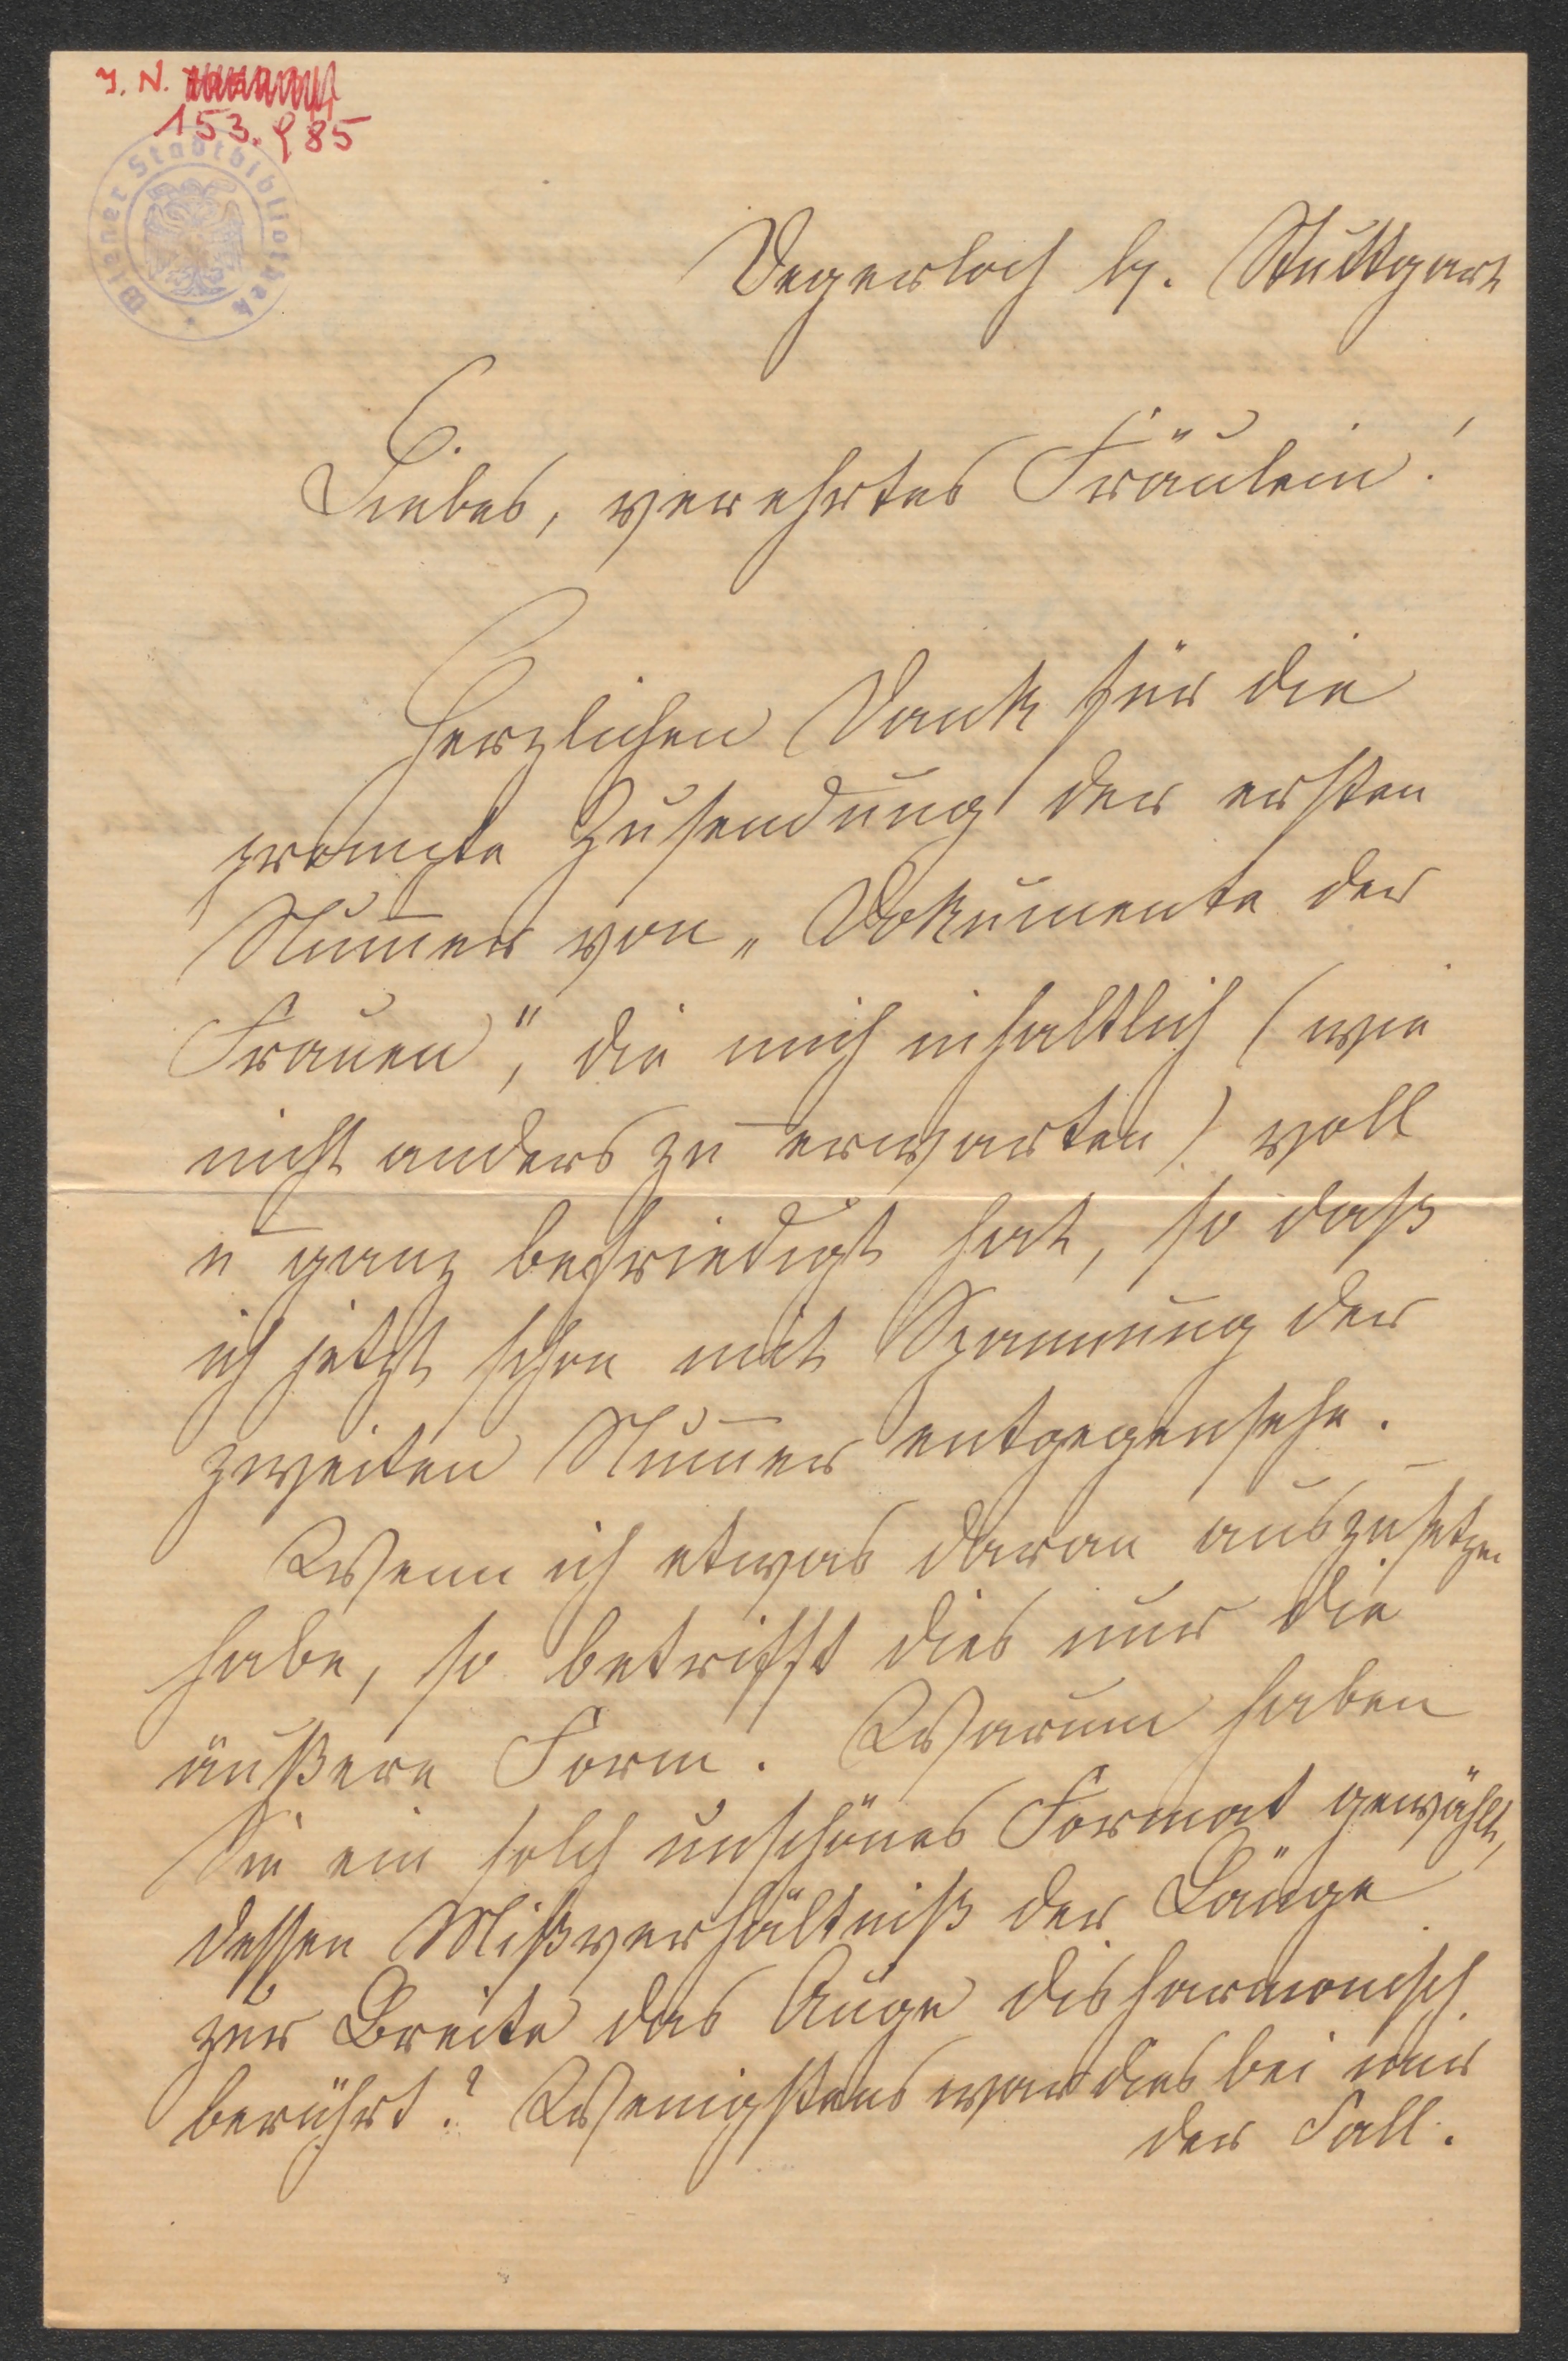 J. N.
153.985
Wiener Stadtbibliothek
Degerloch b/. Stuttgart
Liebes, verehrtes Fräulein!
Herzlichen Dank für die
prompte Zusendung der ersten
Num̅er von „Dokumente der
Frauen“, die mich inhaltlich (wie
nicht anders zu erwarten) voll
u ganz befriedigt hat, so daß
ich jetzt schon mit Spannung der
zweiten Num̅er entgegensehe.
Wenn ich etwas daran auszusetzen
habe, so betrifft dies nur die
äußere Form. Warum haben
Sie ein solch unschönes Format gewählt,
dessen Mißverhältniß der Länge
zur Breite das Auge disharmonisch
berührt? Wenigstens war dies bei mir
der Fall.